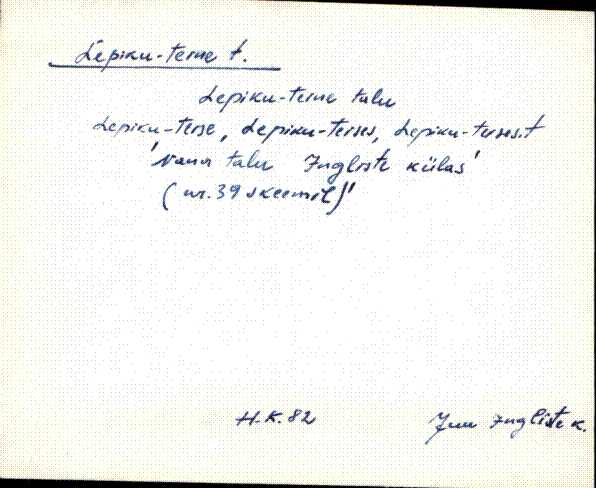 Lepiku-terne t.
Lepiku-terne talu
Lepiku-terse, Lepiku-terses, Lepiku-terses.t
'vana talu Ingliste külas'
(nr. 39 skeemil)'
H.K. 82
Juu Ingliste k.